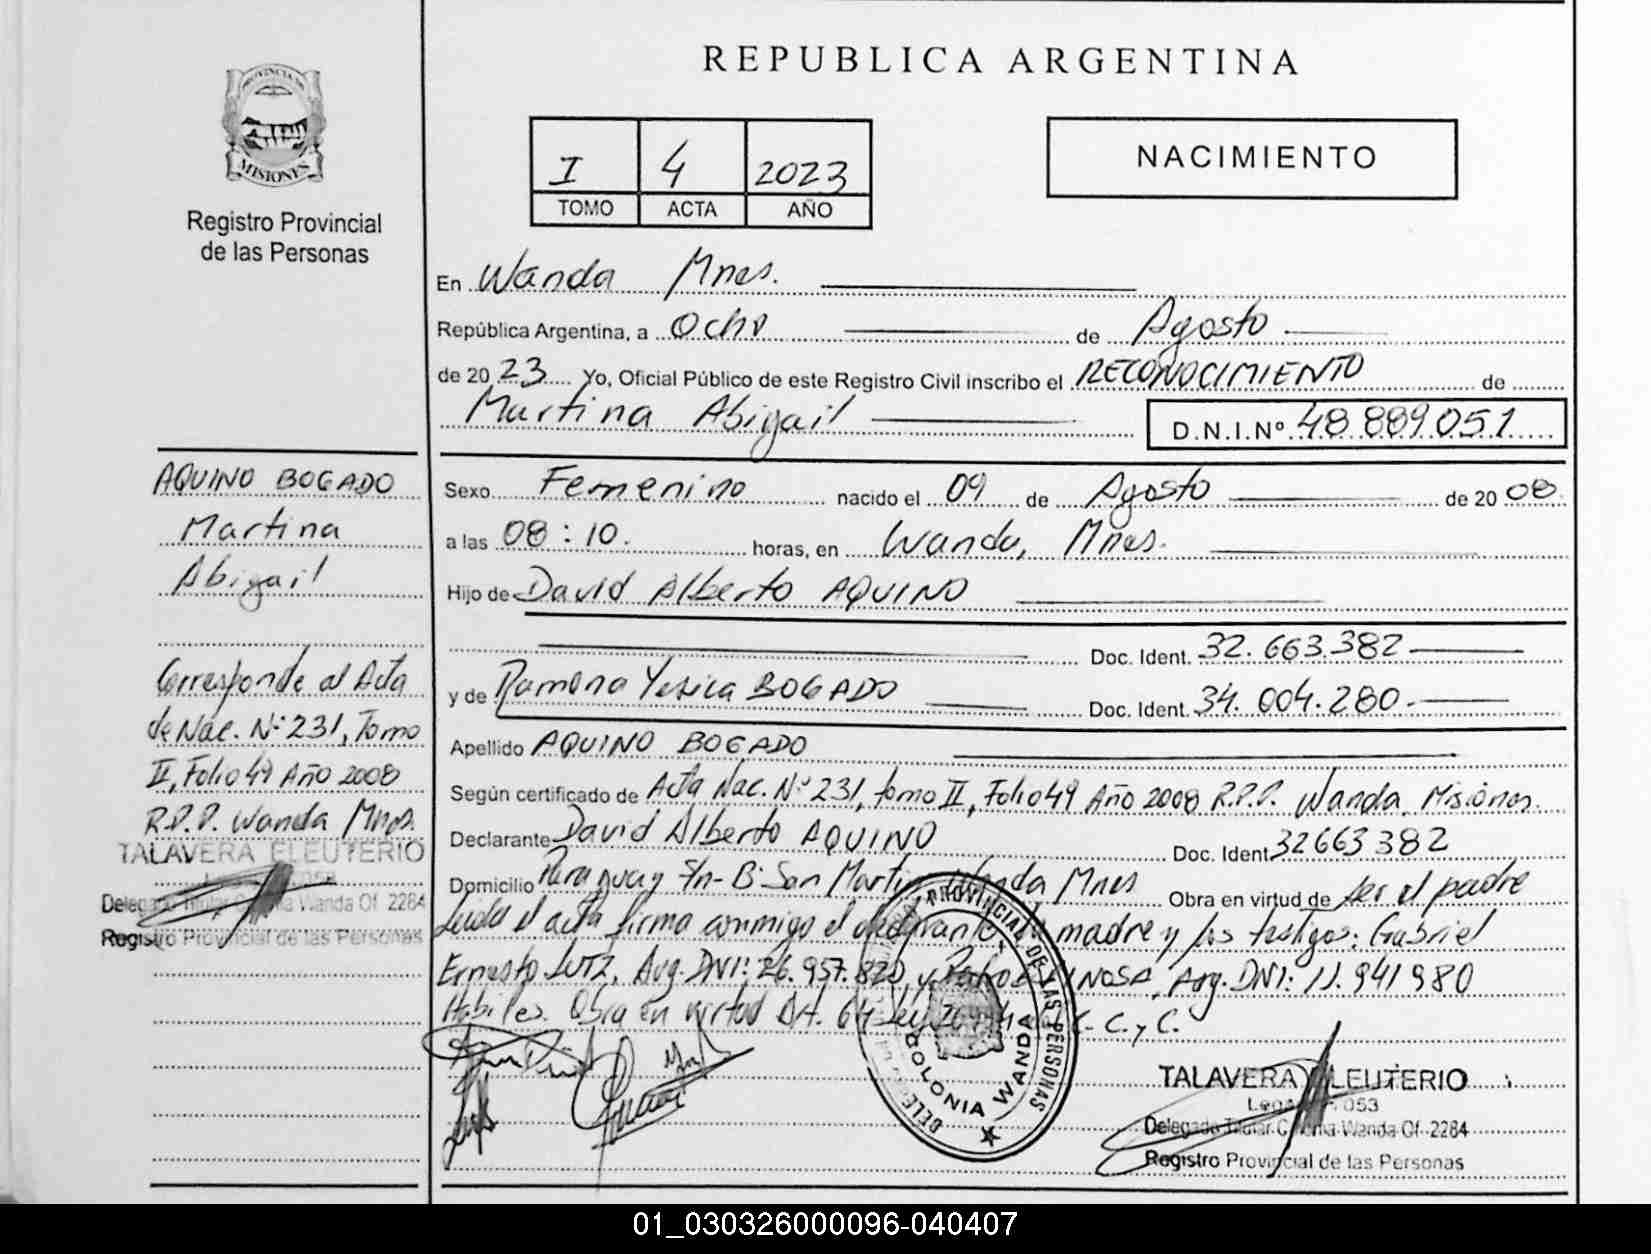 REPUBLICA ARGENTINA
PROVINCIA DE
MISIONES
Registro Provincial
de las Personas
I 4 2023
TOMO ACTA AÑO
NACIMIENTO
En Wanda Mnes.
República Argentina, a Ocho de Agosto
de 20 23 Yo, Oficial Público de este Registro Civil inscribo el RECONOCIMIENTO de
Martina Abigail D.N.I.Nº 48.889.051
Sexo Femenino nacido el 09 de Agosto de 20 08
a las 08:10. horas, en Wanda, Mnes.
Hijo de David Alberto AQUINO
Doc. Ident. 32.663.382
y de Ramona Yesica BOGADO Doc. Ident. 34.004.280.
Apellido AQUINO BOGADO
Según certificado de Acta Nac. Nº 231, tomo II, Folio 49 Año 2008 R.P.P. Wanda, Misiones.
Declarante David Alberto AQUINO Doc. Ident 32663382
Domicilio Paraguay S/n - Bº San Martin Wanda Mnes Obra en virtud de ser el padre
Leida el acta firma conmigo el declarante, madre y los testigos: Gabriel
Ernesto LUTZ, Arg. DNI: 26.957.820, y Arg. DNI: 11.941980
Habiles. Obra en virtud Art. 64 Ley C. y C.
AQUINO BOGADO
Martina
Abigail
Corresponde al Acta
de Nac. Nº 231, Tomo
II, Folio 49 Año 2008
R.P.P. Wanda Mnes.
TALAVERA ELEUTERIO
053
Delegado Titular Colonia Wanda Of. 2284
Registro Provincial de las Personas
PROVINCIAL DE LAS PERSONAS
COLONIA WANDA
TALAVERA ELEUTERIO
Leg 053
Delegado Titular Colonia Wanda Of. 2284
Registro Provincial de las Personas
01_030326000096-040407